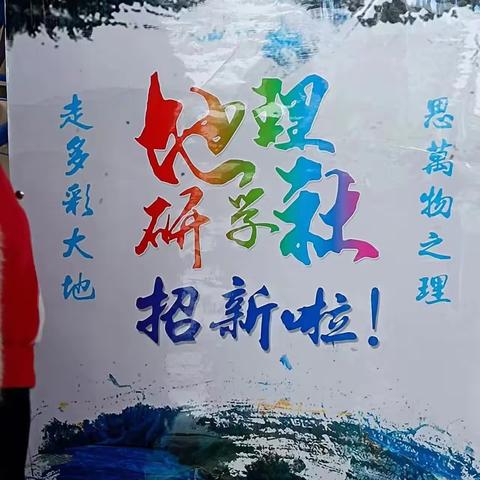 走多彩大地
地理
研学社
招新啦!
思萬物之理